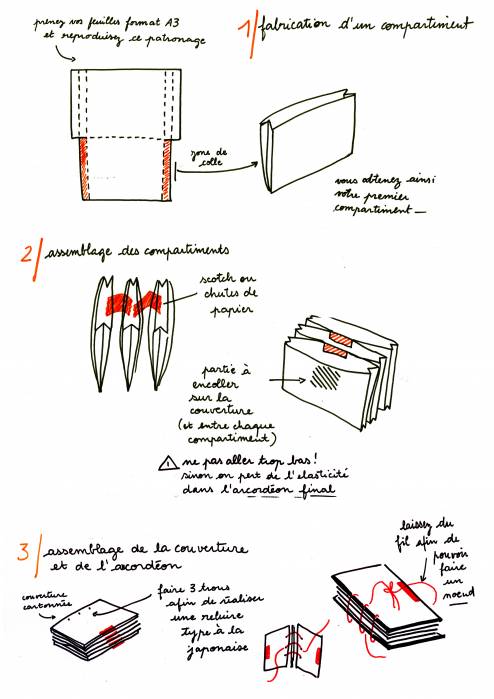 prenez vos feuilles format A3
et reproduisez ce patronage
1/ fabrication d'un compartiment
zone de
colle
vous obtenez ainsi
votre premier
compartiment_
2/ assemblage des compartiments
scotch ou
chutes de
papier
partie à
encoller
sur la
couverture
(et entre chaque
compartiment)
! ne pas aller trop bas!
sinon on pert de l'elasticité
dans l'accordéon final
3/ assemblage de la couverture
et de l'accordéon
laissez du
fil afin de
pouvoir
faire
un
noeud
couverture
cartonnée
faire 3 trous
afin de réaliser
une reliure
type à la
japonaise